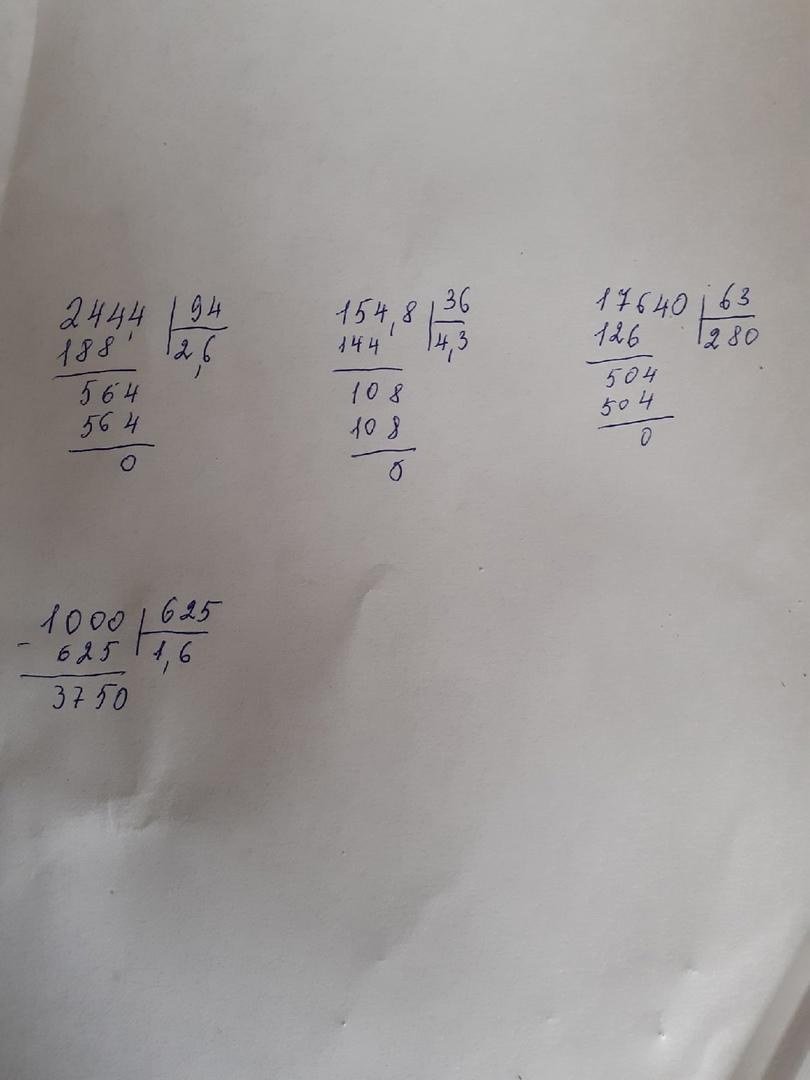 244,4 94
188 2,6
564
564
0
154,8 36
144 4,3
108
108
0
17640 63
126 280
504
504
0
1000 625
- 625 1,6
3750